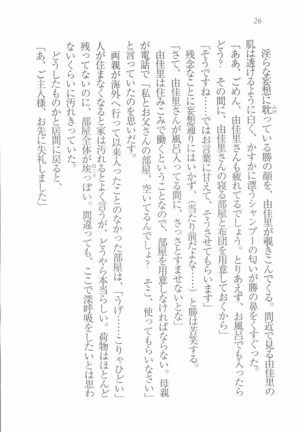 26
淫らな妄想に耽っている勝の顔を、由佳里が覗きこんでくる。間近で見る由佳里の
肌は透けるように白く、かすかに漂うシャンプーの匂いが勝の鼻をくすぐった。
「ああ、ごめん。由佳里さんも疲れてるでしょう。とりあえず、お風呂でも入ったら
どう？　その間に、由佳里さんの寝る部屋と布団を用意しておくから」
「そうですね……ではお言葉に甘えて、そうさせてもらいます」
残念なことに妄想通りにはいかず、（当たり前だよな……）と勝は苦笑する。
「さて、由佳里さんが風呂入ってる間に、さっさとすませないとな」
由佳里は住みこみで働くということなので、部屋を用意しなければならない。母親
が電話で「私とお父さんの部屋、空いてるんでしょ？　そこ、使ってもらいなさい」
と言っていたのを思いだす。
両親が海外へ行って以来入ったことのなかった部屋は、「うげ……こりゃひどい」
人が住まなくなると家は汚れるとよく言うが、どうやら本当らしい。荷物はほとんど
残ってないのに、部屋全体が埃っぽい。間違っても、ここで深呼吸をしたいとは思わ
ないくらいに汚れきっていた。
どうしたものかと居間に戻ると、
「あ、ご主人様、お先に失礼しました」